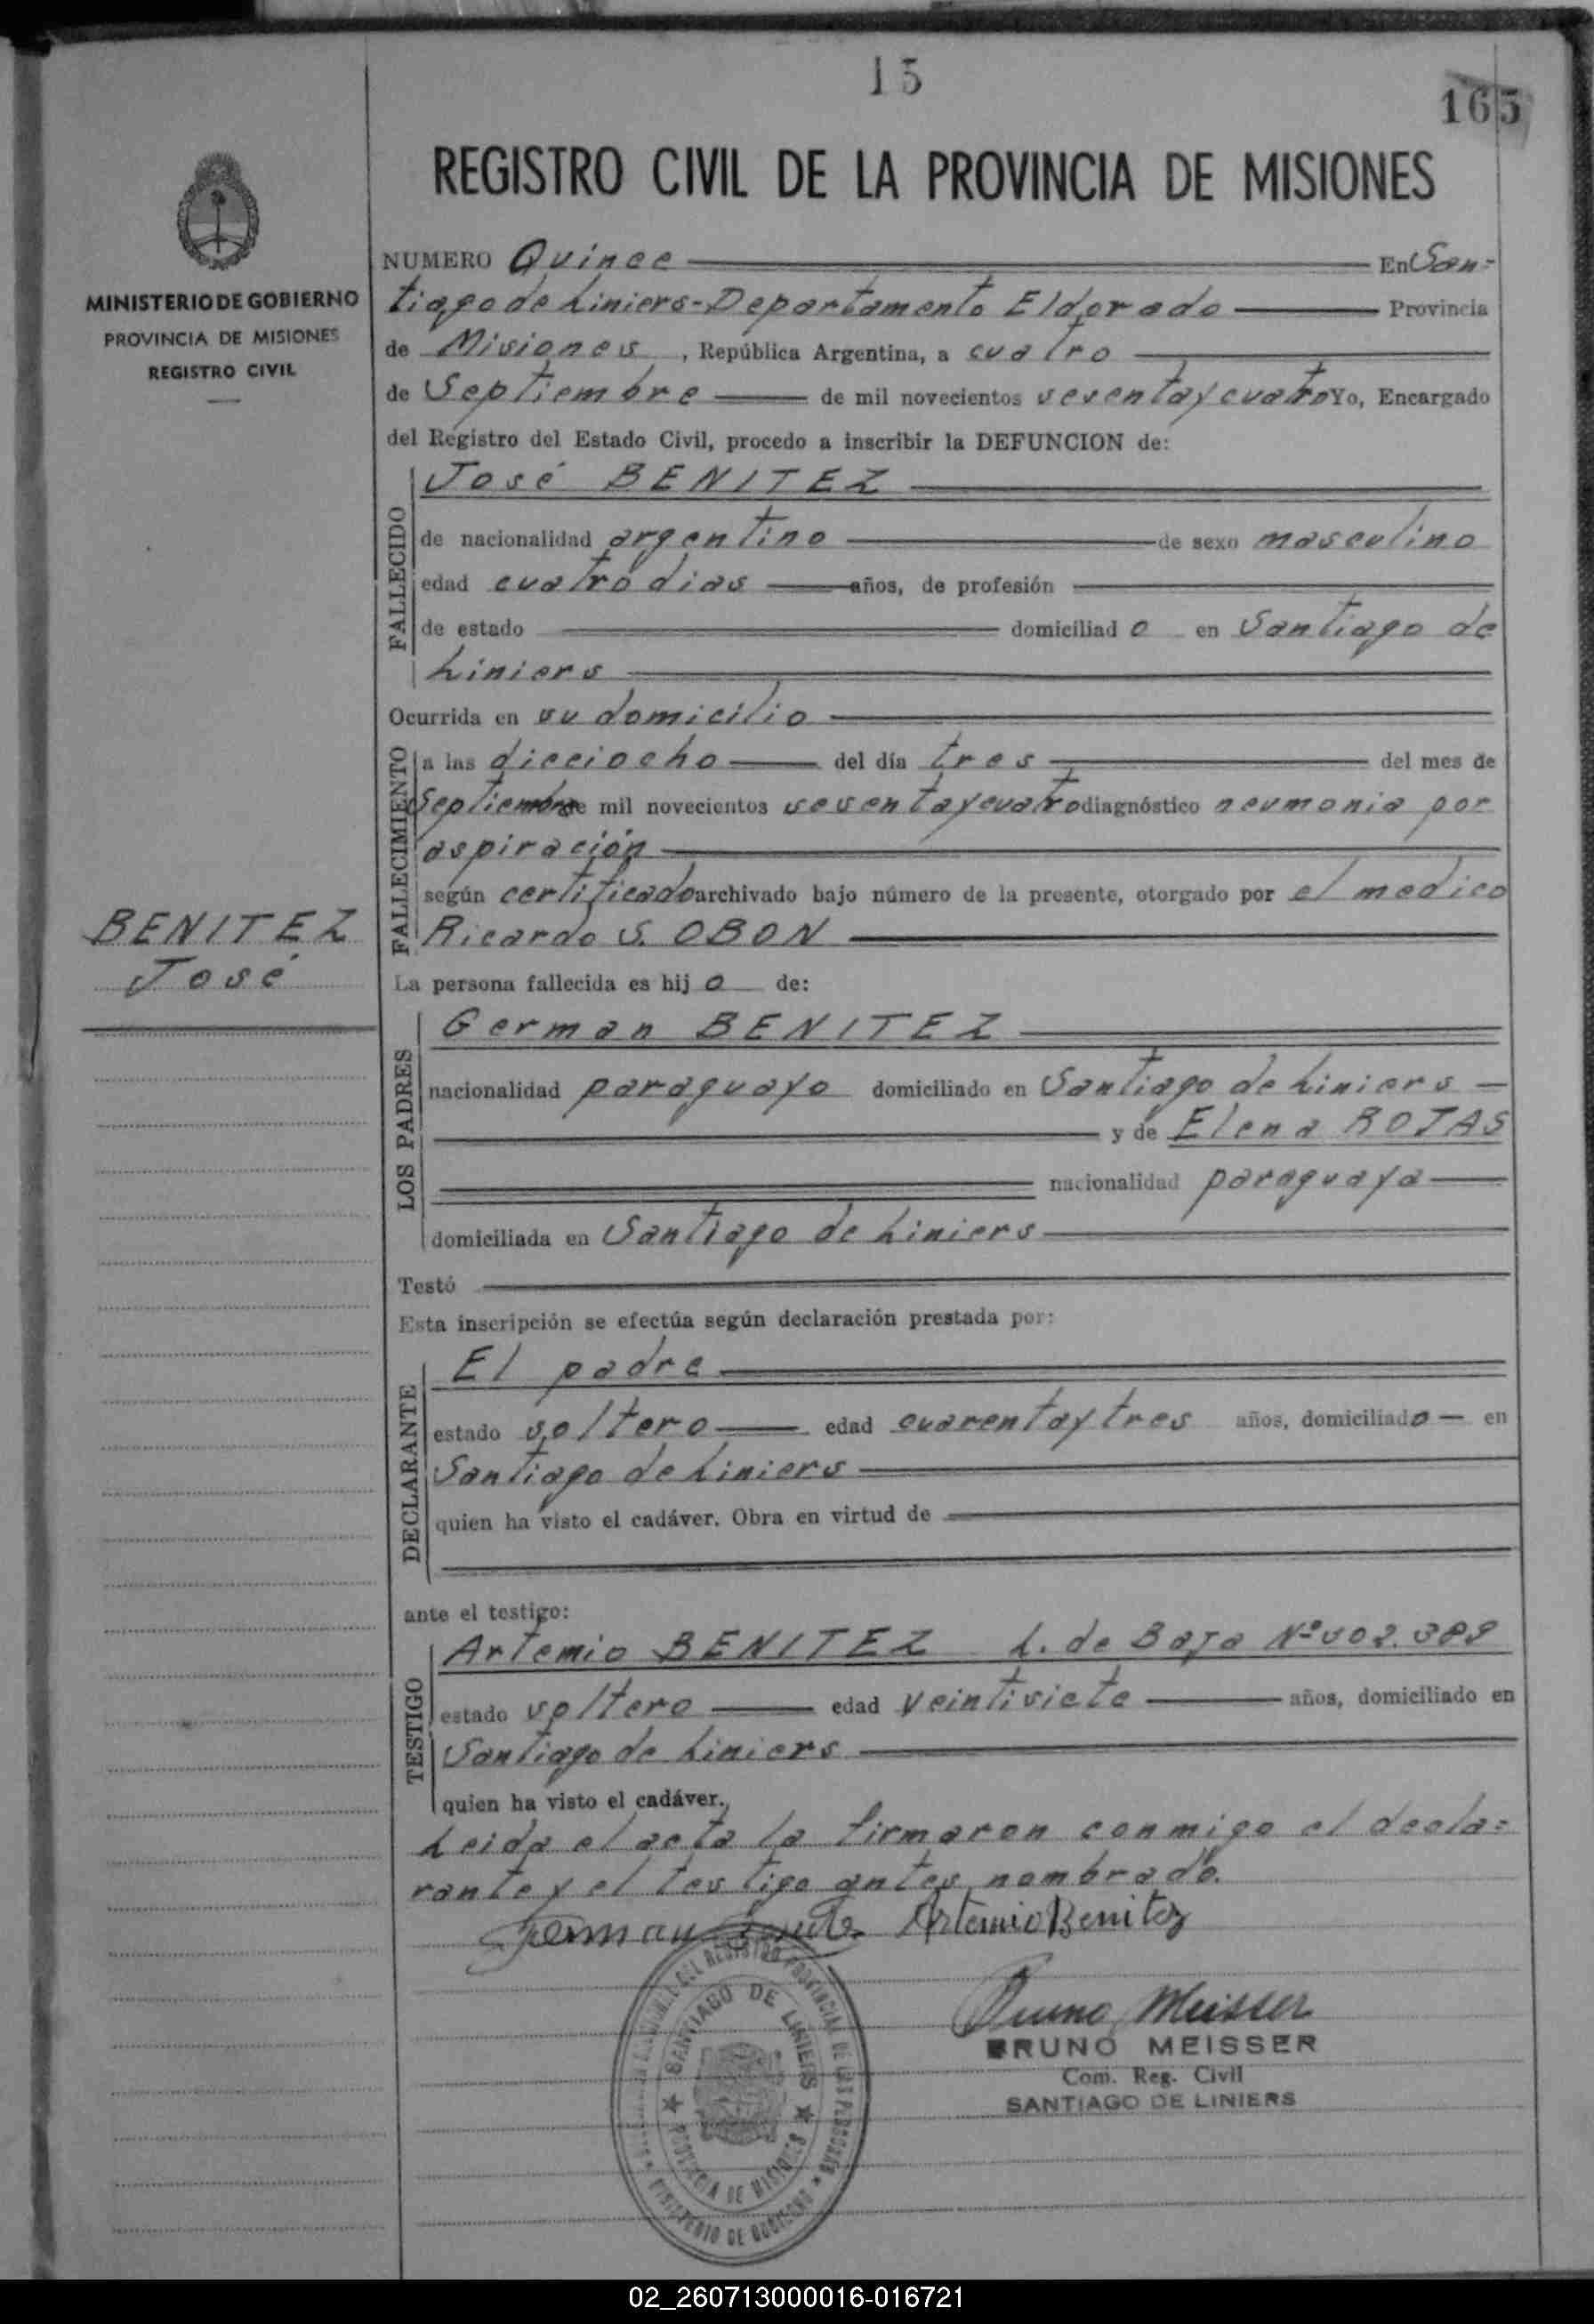 15
165
REGISTRO CIVIL DE LA PROVINCIA DE MISIONES
MINISTERIO DE GOBIERNO
PROVINCIA DE MISIONES
REGISTRO CIVIL
NUMERO Quince En San=
tiago de Liniers-Departamento Eldorado Provincia
de Misiones, República Argentina, a cuatro
de Septiembre de mil novecientos sesenta y cuatro Yo, Encargado
del Registro del Estado Civil, procedo a inscribir la DEFUNCION de:
FALLECIDO
José BENITEZ
de nacionalidad argentino de sexo masculino
edad cuatro dias años, de profesión
de estado domiciliado en Santiago de
Liniers
Ocurrida en su domicilio
FALLECIMIENTO
a las dieciocho del día tres del mes de
Septiembre de mil novecientos sesenta y cuatro diagnóstico neumonia por
aspiración
según certificado archivado bajo número de la presente, otorgado por el medico
Ricardo S. OBON
BENITEZ
José
La persona fallecida es hijo de:
LOS PADRES
German BENITEZ
nacionalidad paraguayo domiciliado en Santiago de Liniers
y de Elena ROJAS
nacionalidad paraguaya
domiciliada en Santiago de Liniers
Testó
Esta inscripción se efectúa según declaración prestada por:
DECLARANTE
El padre
estado soltero edad cuarenta y tres años, domiciliado en
Santiago de Liniers
quien ha visto el cadáver. Obra en virtud de
ante el testigo:
TESTIGO
Artemio BENITEZ L. de Baja Nº
estado soltero edad veintisiete años, domiciliado en
Santiago de Liniers
quien ha visto el cadáver.
Leida el acta la firmaron conmigo el decla=
rante y el testigo antes nombrado.
German Artemio Benitez
Bruno Meisser
BRUNO MEISSER
Com. Reg. Civil
SANTIAGO DE LINIERS
SANTIAGO DE LINIERS
PROVINCIA DE MISIONES
MINISTERIO DE GOBIERNO
02_260713000016-016721